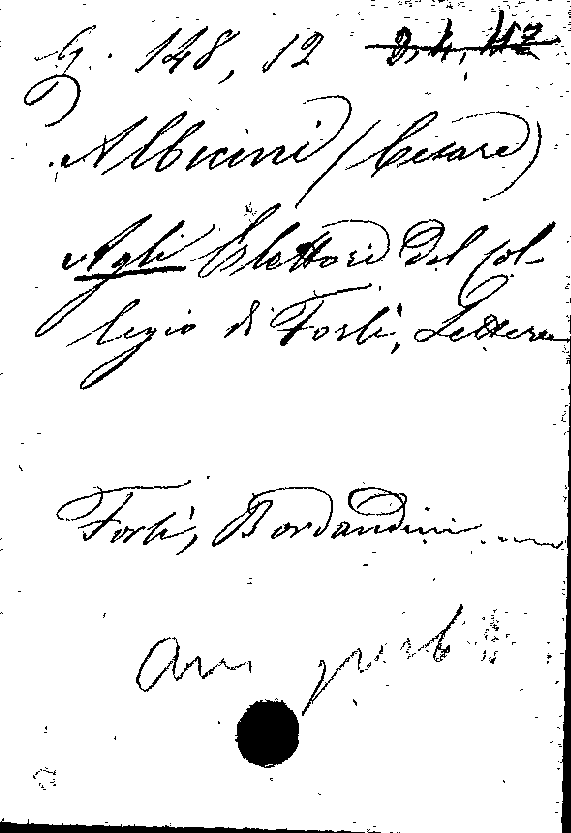 G. 148, 12 2, 4, 42
Albicini (Cesare)
Agli Elettori del col-
legio di Forlì, Lettera
Forlì, Bordandini